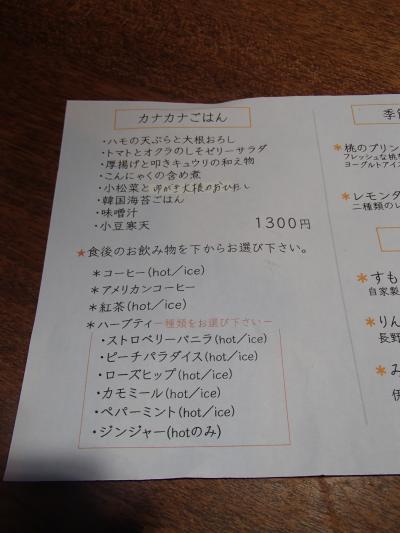 カナカナごはん
・ハモの天ぷらと大根おろし
・トマトとオクラのしそゼリーサラダ
・厚揚げと叩きキュウリの和え物
・こんにゃくの含め煮
・小松菜と切干大根のおひたし
・韓国海苔ごはん
・味噌汁
・小豆寒天 1300円
★食後のお飲み物を下からお選び下さい。
＊コーヒー(hot／ice)
＊アメリカンコーヒー
＊紅茶(hot／ice)
＊ハーブティー種類をお選び下さいー
・ストロベリーバニラ(hot／ice)
・ピーチパラダイス(hot／ice)
・ローズヒップ(hot／ice)
・カモミール(hot／ice)
・ペパーミント(hot／ice)
・ジンジャー(hotのみ)
季節
＊桃のプリン
フレッシュな桃
ヨーグルトアイス
＊レモンタ
二種類のレ
＊すも
自家製
＊りん
長野
＊み
伊